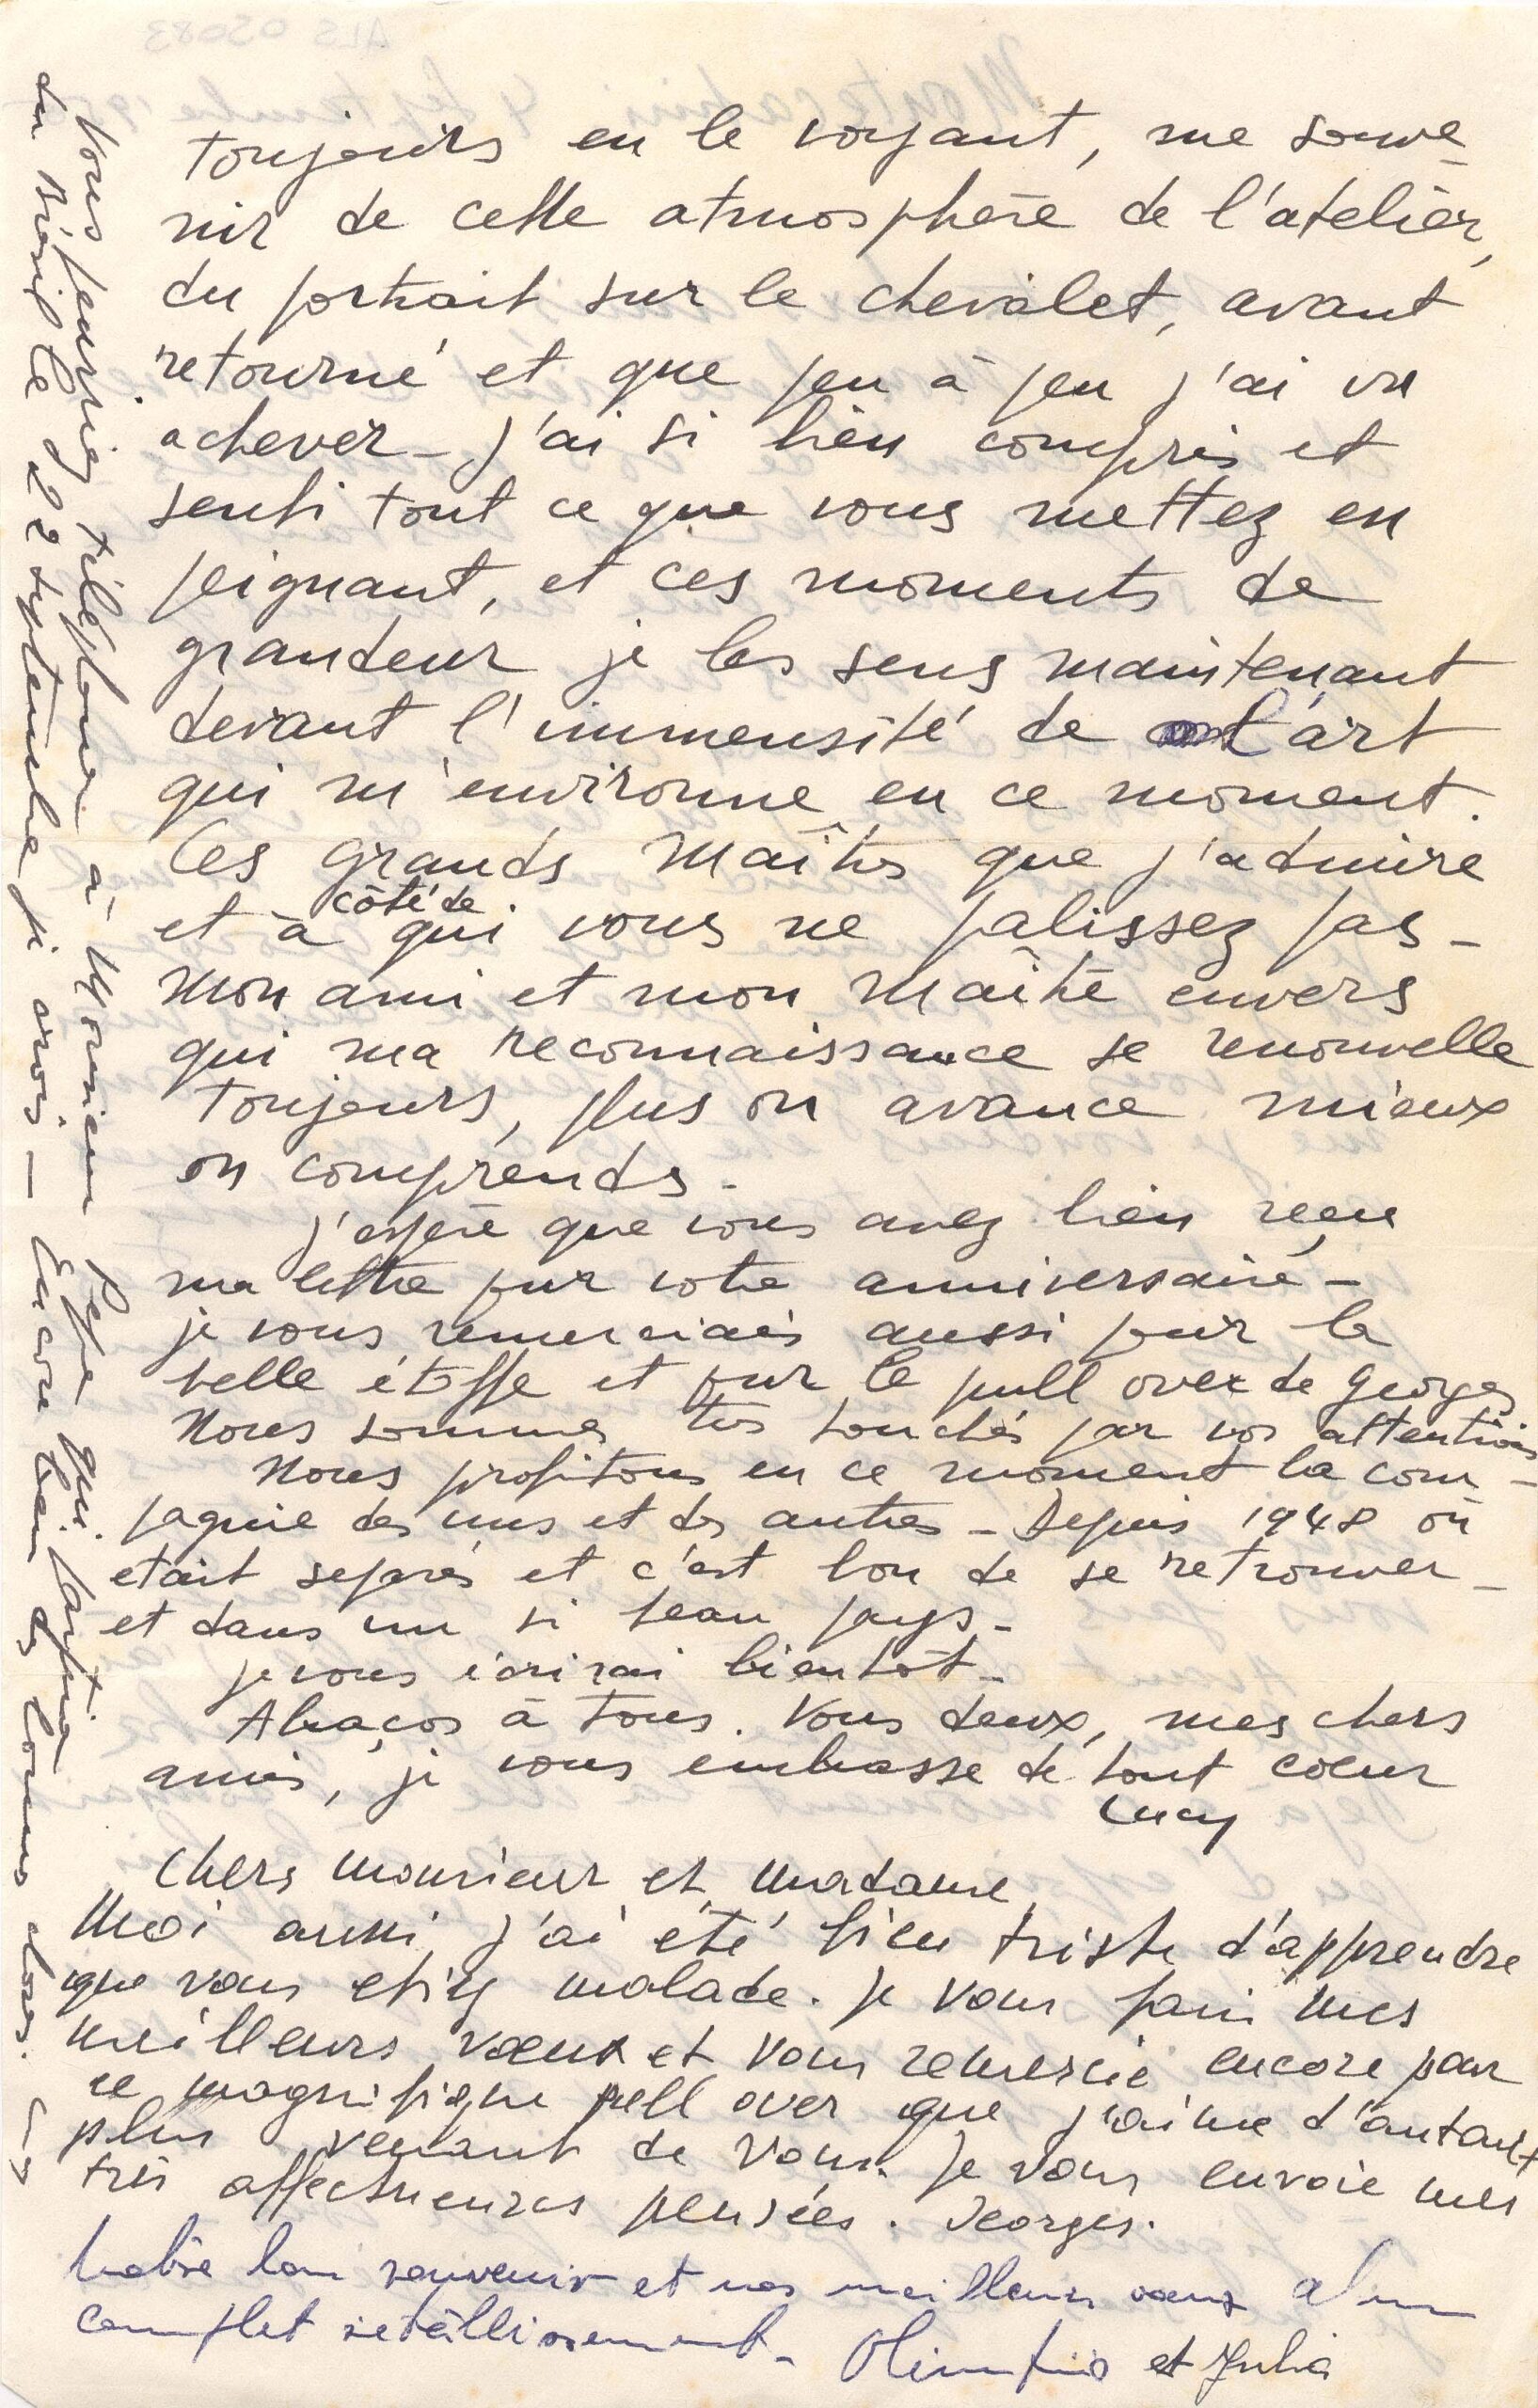 toujours en le voyant, me souve-
nir de cette atmosphère de l'atelier,
du portrait sur le chevalet, avant
retourné et que peu à peu j'ai vu
achever - j'ai si bien compris et
senti tout ce que vous mettez en
peignant, et ces moments de
grandeur je les sens maintenant
devant l'immensité de l'art
qui m'environne en ce moment.
Ces grands Maîtres que j'admire
et à côté de qui vous ne palissez pas -
Mon ami et mon Maître envers
qui ma reconnaissance se renouvelle
toujours, plus on avance mieux
on comprends -
j'espère que vous avez bien reçu
ma lettre pur votre anniversaire -
je vous remerciais aussi pour la
belle étoffe et pur le pull over de Georges
Nous sommes très touchés par vos attentions
Nous profitons en ce moment la com-
pagnie des uns et des autres - Depuis 1948 on
etait separés et c'est bon de se retrouver -
et dans un si beau pays -
je vous écrirai bientôt -
Abraços à tous. Vous deux, mes chers
amis, je vous embrasse de tout coeur
Lucy
Chers monsieur et madame
Moi aussi, j'ai été bien triste d'apprendre
que vous etiez malade. Je vous fais mes
meilleurs vœux et vous remercie encore pour
ce magnifique pull over que j'aime d'autant
plus venant de vous. Je vous envoie mes
très affectueuses pensées. Georges.
Notre bon souvenir et nos meilleurs vœux d'un
complet rétablissement - Olimpio et Julia
Vous pourriez téléphoner à Monsieur Pepe qui partira
du Brésil le 22 septembre je crois - Encore bien des bonnes choses.